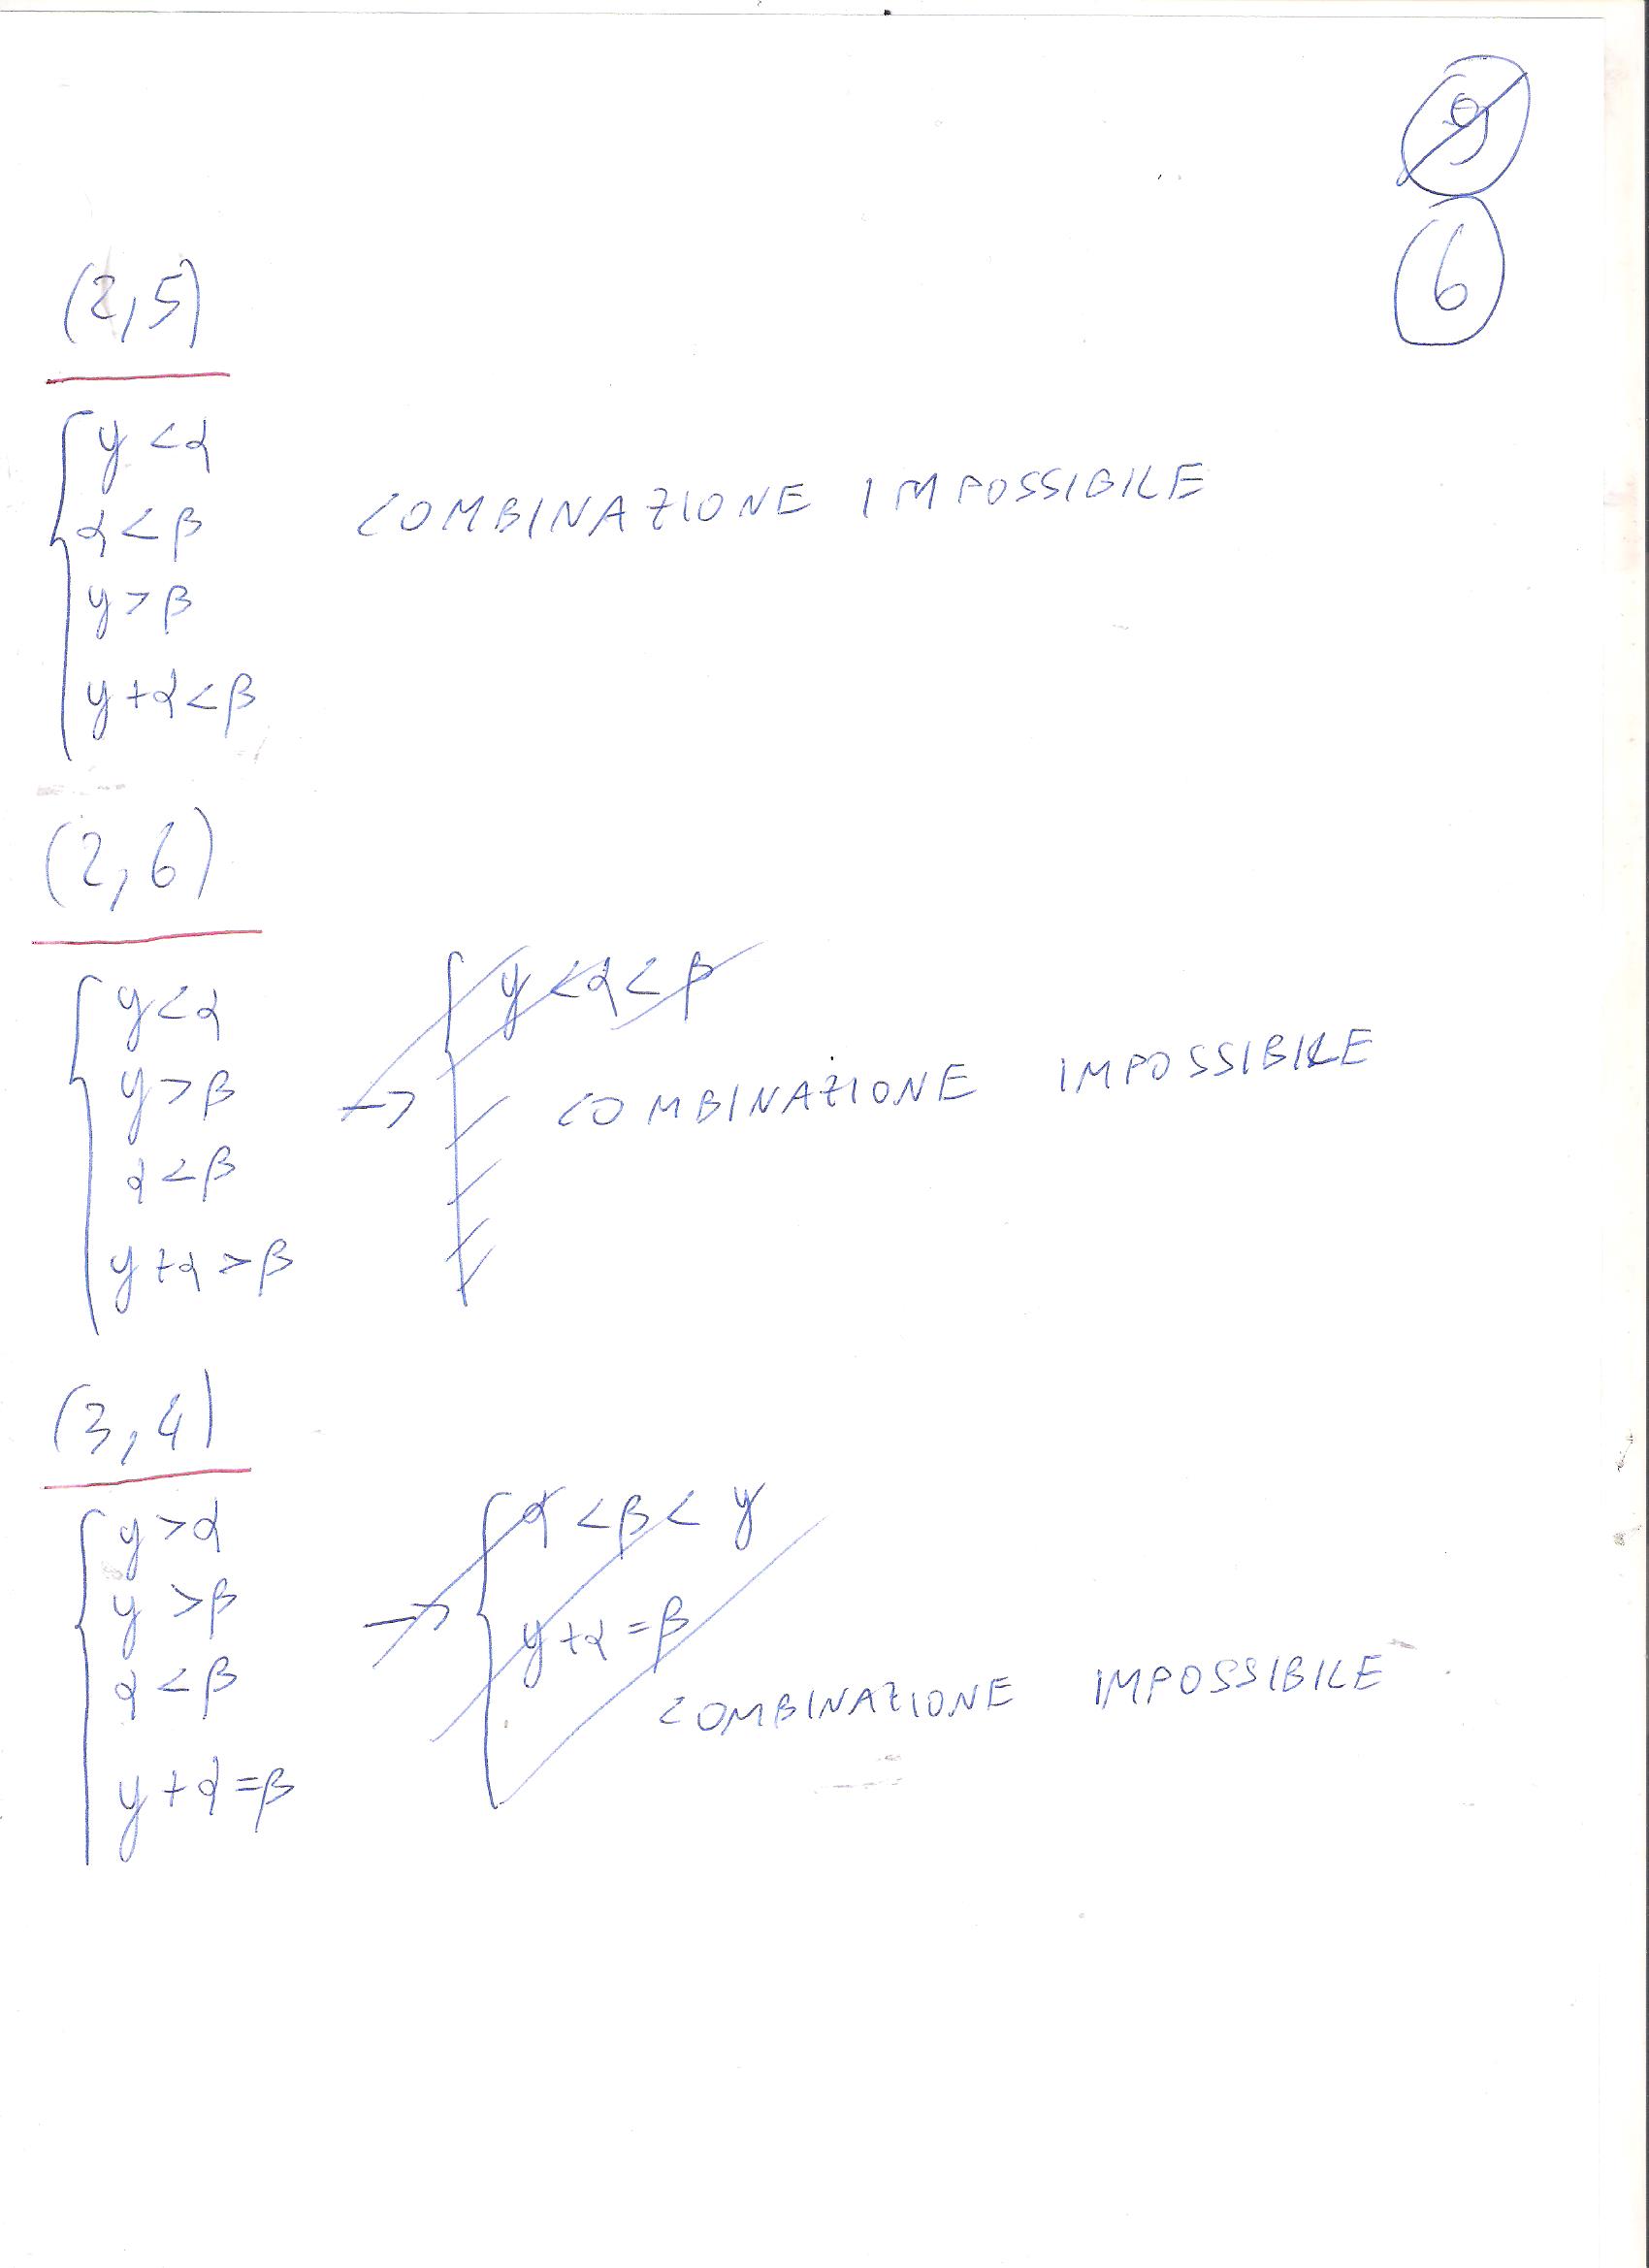 9
6
(2,5)
y < α
α < β
y > β
y + α < β
COMBINAZIONE IMPOSSIBILE
(2,6)
y < α
y > β
α < β
y + α > β
→
y < α < β
COMBINAZIONE IMPOSSIBILE
(3,4)
y > α
y > β
α < β
y + α = β
→
α < β < y
y + α = β
COMBINAZIONE IMPOSSIBILE